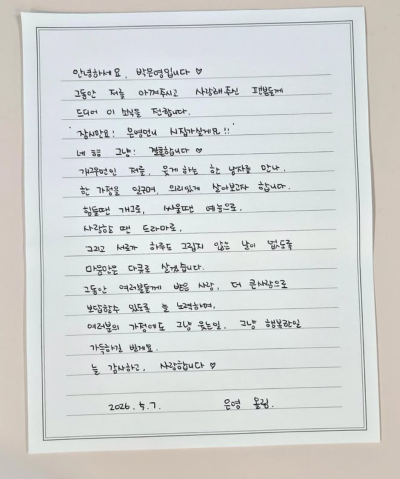 안녕하세요, 박은영입니다 ♡
그동안 저를 아껴주시고 사랑해주신 팬분들께
드디어 이 소식을 전합니다.
"잠시만요! 은영언니 시집가실게요!!"
네 ㅎㅎ 그냥! 결혼합니다 ♡
개그우먼인 저를, 웃게하는 한 남자를 만나,
한 가정을 일구며, 의리있게 살아보고자 합니다.
힘들땐 개그로, 싸울땐 예능으로,
사랑할 땐 드라마로,
그리고 서로가 하루도 그립지 않은 날이 없도록
마음만은 다큐로 살겠습니다.
그동안 여러분들께 받은 사랑, 더 큰사랑으로
보답할수 있도록 늘 노력하며,
여러분의 가정에도 그냥 웃는일, 그냥 행복한일
가득하길 빌게요.
늘 감사하고, 사랑합니다 ♡
2026. 5. 7. 은영 올림.